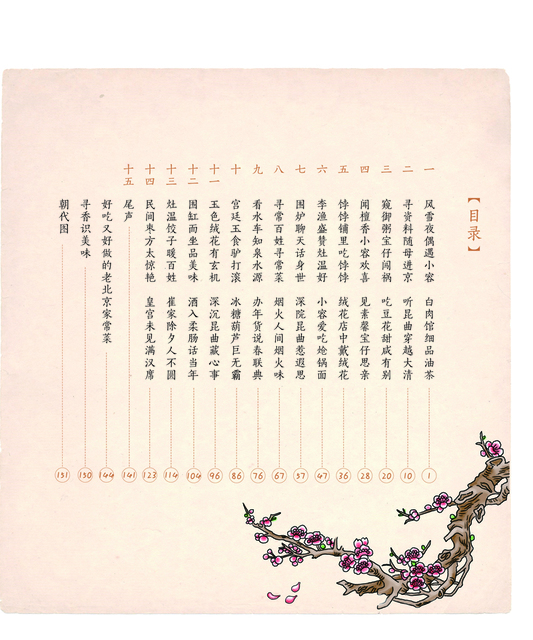 【目录】
一 风雪夜偶遇小容 白肉馆细品油茶 1
二 寻资料随母进京 听昆曲穿越大清 10
三 窥御粥宝仔闹祸 吃豆花甜咸有别 20
四 闻檀香小容欢喜 见素馨宝仔思亲 28
五 饽饽铺里吃饽饽 绒花店中戴绒花 36
六 李渔盛赞灶温好 小容爱吃炝锅面 47
七 围炉聊天话身世 深院昆曲惹遐思 57
八 寻常百姓寻常菜 烟火人间烟火味 67
九 看水车知泉水源 办年货说春联典 76
十 宫廷玉食驴打滚 冰糖葫芦巨无霸 86
十一 玉色绒花有玄机 深沉昆曲藏心事 96
十二 围缸而坐品美味 酒入柔肠话当年 104
十三 灶温饺子暖百姓 崔家除夕人不圆 114
十四 民间枣方太惊艳 皇宫未见满汉席 123
十五 尾声 141
好吃又好做的老北京家常菜 144
寻香识美味 150
朝代图 151